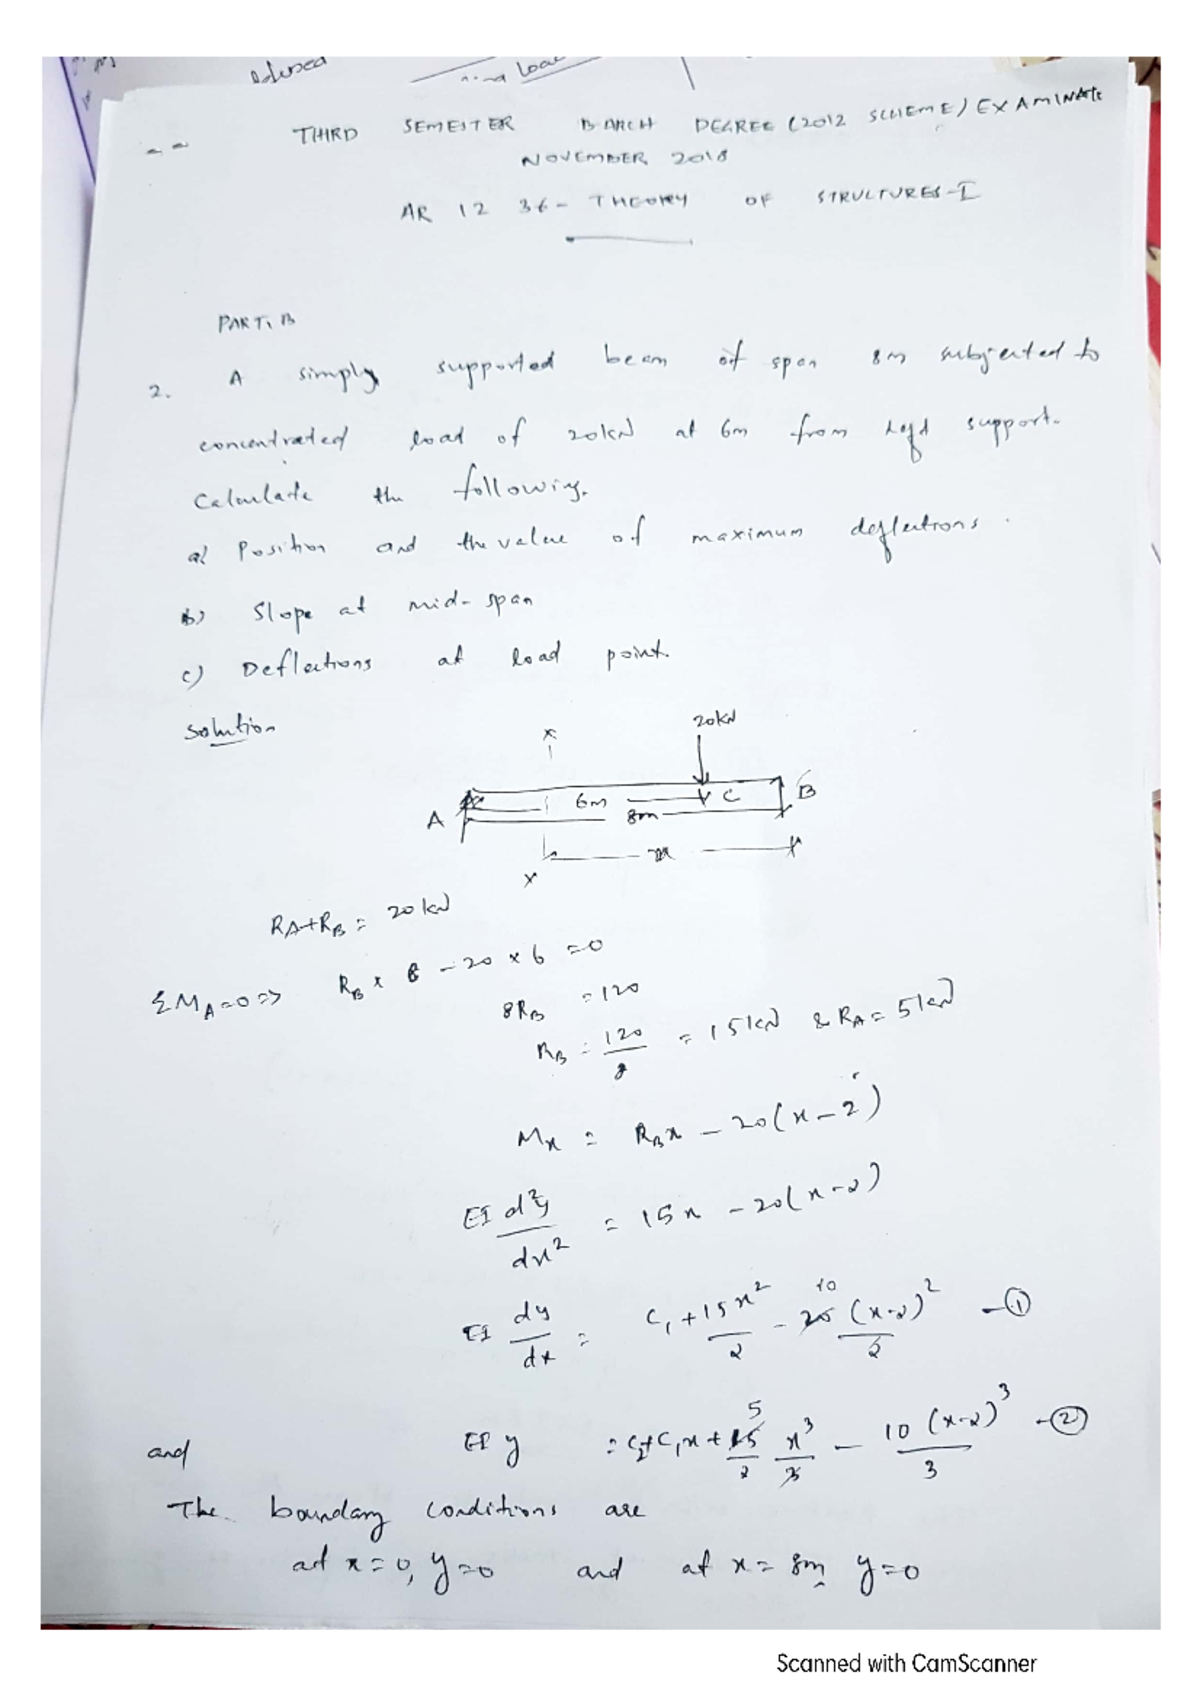 edused
ind Load
THIRD SEMESTER B-ARCH DEGREE (2012 SCHEME) EXAMINATE
NOVEMBER 2018
AR 12 36 - THEORY OF STRUCTURES-I
PART, B
2. A simply supported beam of span 8m subjected to
concentrated load of 20kN at 6m from left support.
Calculate the following.
a) Position and the value of maximum deflections.
b) Slope at mid-span
c) Deflections at load point.
Solution
20kN
x
A 6m C B
8m
x
x
RA+RB = 20kN
ΣMA=0=> RB x 8 - 20 x 6 = 0
8RB = 120
RB = 120/8 = 15kN & RA = 5kN
Mx = RBx - 20(x-2)
EI d²y/dx² = 15x - 20(x-2)
EI dy/dx = C1 + 15x²/2 - 20 10 (x-2)²/2 -①
and EI y = C2+C1x + 15 5/2 x³/3 - 10 (x-2)³/3 -②
The boundary conditions are
at x=0, y=0 and at x= 8m y=0
Scanned with CamScanner